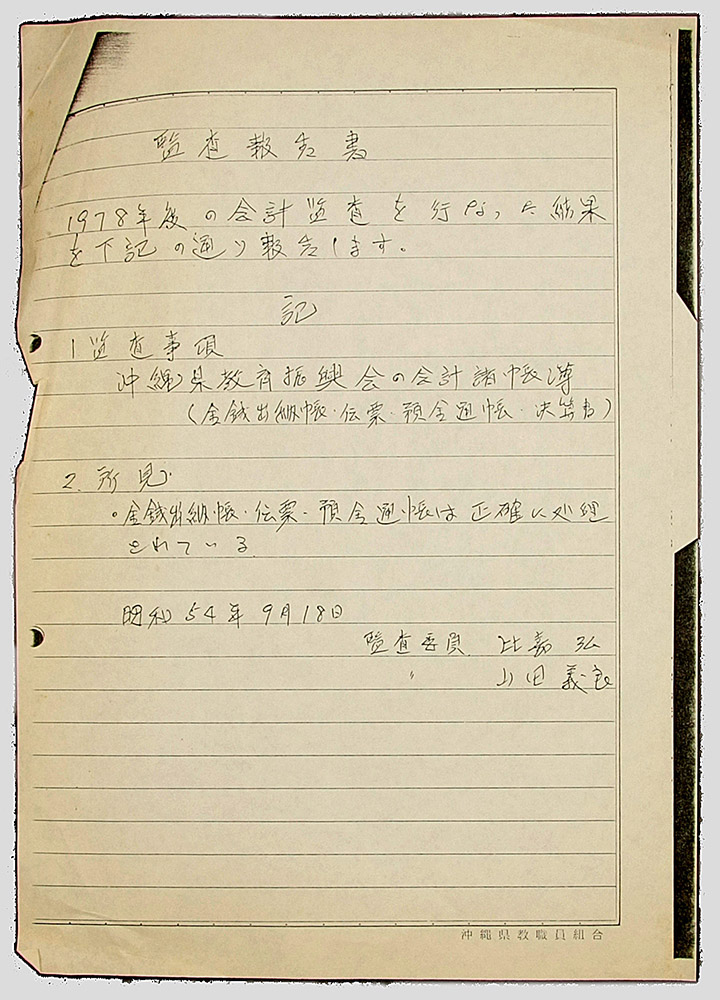 監査報告書
1978年度の会計監査を行なった結果
を下記の通り報告します。
記
1 監査事項
沖縄県教育振興会の会計諸帳簿
(金銭出納帳・伝票・預金通帳・決算書)
2. 所見
・金銭出納帳・伝票・預金通帳は正確に処理
されている.
昭和54年9月18日
監査委員 比嘉 弘
〃 山田 義良
沖縄県教職員組合